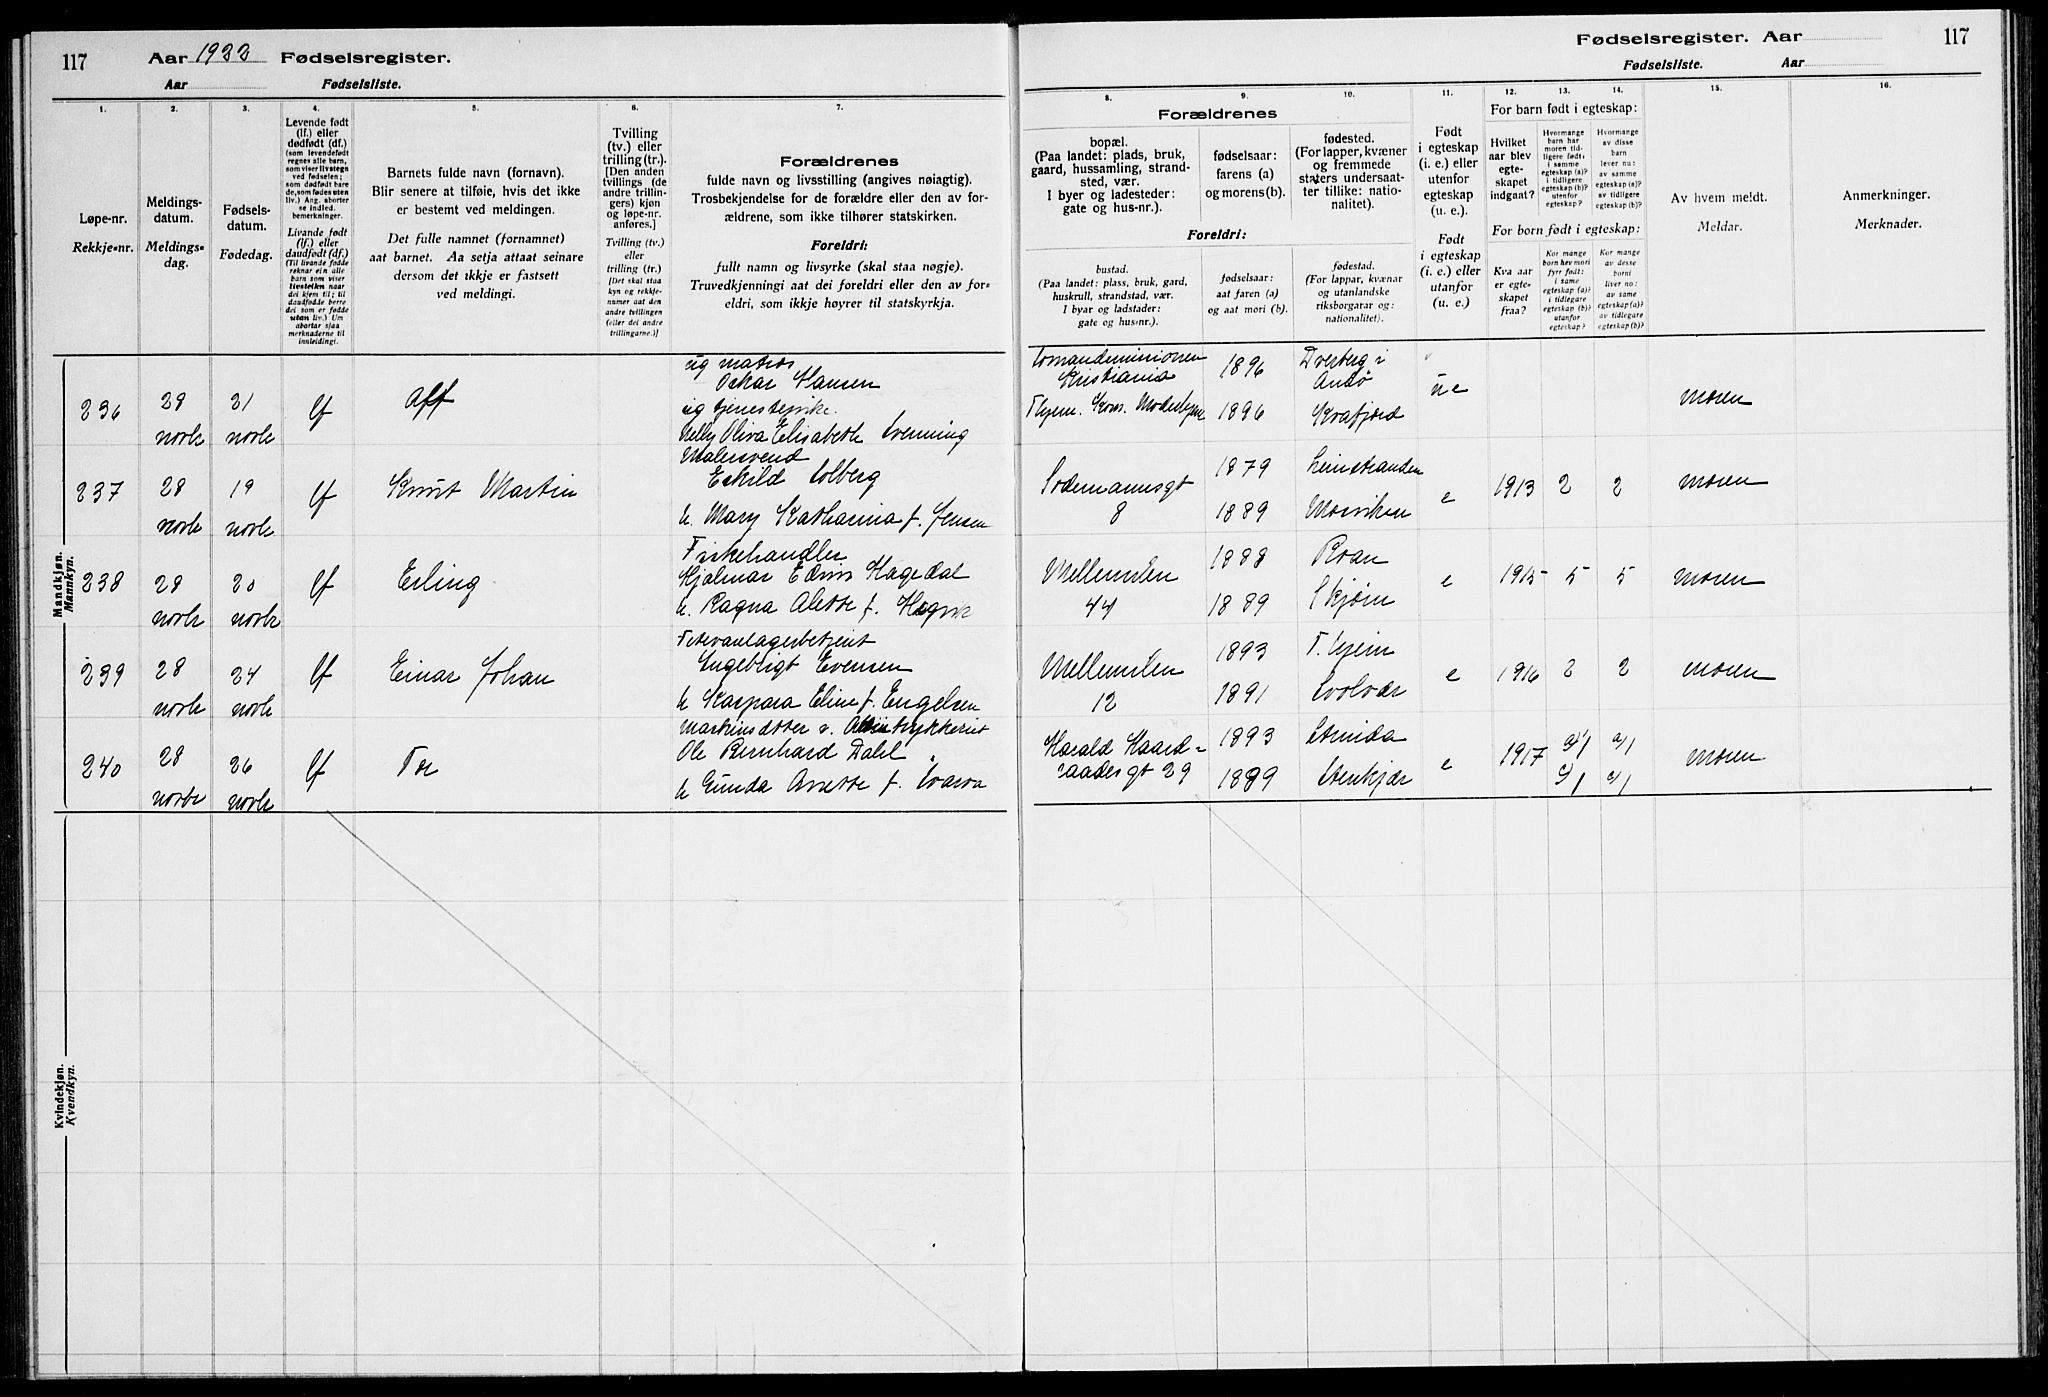 117
Aar 1922 Fødselsregister.
Aar Fødselsliste.
Fødselsregister. Aar
117
Fødselsliste. Aar
1. 2. 3. 4. 5. 6. 7.
Løpe-nr.
Rekkje-nr.
Meldings-
datum.
Meldings-
dag.
Fødsels-
datum.
Fødedag.
Levende født
(lf.) eller
dødfødt (df.)
(som levendefødt
regnes alle barn,
som viser livstegn
ved fødselen;
som dødfødt bare
de, som fødes uten
liv.) Ang. aborter
se indled.
bemerkninger.
Livande født
(lf.) eller
daudfødt (df.)
(Til livande fødde
reknar ein alle
barn som viser
livsteikn naar
dei kjem til; til
daudfødde berre
dei som er fødde
utan liv.) Um
abortar sjaa
merknaderne til
innleidingi.
Barnets fulde navn (fornavn).
Blir senere at tilføie, hvis det ikke
er bestemt ved meldingen.
Det fulle namnet (fornamnet)
aat barnet. Aa setja attaat seinare
dersom det ikkje er fastsett
ved meldingi.
Tvilling
(tv.) eller
trilling (tr.).
[Den anden
tvillings (de
andre trillin-
gers) kjøn
og løpe-nr.
anføres.]
Tvilling (tv.)
eller
trilling (tr.)
[Det skal staa
kyn og rekkje-
numer aat den
andre tvillingen
(eller dei andre
trillingarne.)]
Forældrenes
fulde navn og livsstilling (angives nøiagtig).
Trosbekjendelse for de forældre eller den av for-
ældrene, som ikke tilhører statskirken.
Foreldri:
fullt namn og livsyrke (skal staa nøgje).
Truvedkjenningi aat dei foreldri eller den av for-
eldri, som ikkje høyrer til statskyrkja.
8. 9. 10. 11. 12. 13. 14. 15. 16.
Forældrenes
bopæl.
(Paa landet: plads, bruk,
gaard, hussamling, strand-
sted, vær.
I byer og ladesteder:
gate og hus-nr.).
fødselsaar:
farens (a)
og morens (b).
fødested.
(For lapper, kvæner
og fremmede
staters undersaat-
ter tillike: natio-
nalitet).
Foreldri:
bustad.
(Paa landet: plass, bruk, gard,
huskrull, strandstad, vær.
I byar og ladstader:
gate og hus-nr.).
fødselsaar:
aat faren (a)
og aat mori (b).
fødestad.
(For lappar, kvænar
og utanlandske
riksborgarar og:
nationalitet).
Født
i egteskap
(i. e.) eller
utenfor
egteskap
(u. e.).
Født
i egteskap
(i. e.) eller
utanfor
(u. e.).
For barn født i egteskap:
Hvilket
aar blev
egte-
skapet
indgaat?
Hvormange
barn har
moren tid-
ligere født:
i samme
egteskap (a)?
i tidligere
egteskap (b)?
utenfor
egteskap?
Hvormange
av disse
barn
lever nu:
av samme
egteskap (a)?
av tidligere
egteskap (b)?
For born født i egteskap:
Kva aar
er egte-
skapet
fraa?
Kor mange
born hev mori
fyrr født:
i same
egteskap (a)?
i tidlegare
egteskap (b)?
utanfor
egteskap?
Kor mange
av desse
borni
liver no:
av same
egteskap (a)?
av tidlegare
egteskap (b)?
Av hvem meldt.
Meldar.
Anmerkninger.
Merknader.
Mandkjøn.
Mannkyn.
ug matros
236 29 novbr 21 novbr lf Alf Oskar Hansen
ug tjenestepike
Nelly Oliva Elisabeth Svenning
Kristiania 1896 Dverberg i Andø
1896 ue moren
Malersvend
237 28 novbr 19 novbr lf Knut Martin Eskild Solberg
h. Mary Katharina f. Jensen
Sodemannsgt 8 1879 Leinstranden
1889 Mosviken e 1913 2 2 moren
Fiskehandler
238 28 novbr 20 novbr lf Erling Hjalmar Edvin Hagedal
h. Ragna Alette f. Hegvik
Mellemilen 44 1888 Roan
1889 Skjørn e 1915 5 5 moren
239 28 novbr 24 novbr lf Einar Johan Ingebrigt Evensen
h Kaspara Eline f. Engelsen
Mellemilen 12 1893 T.hjem
1891 Svolvær e 1916 2 2 moren
240 28 novbr 26 novbr lf Tor Ole Bernhard Dahl
h Gunda Anette f. Svarva
Harald Haard-
raadesgt 29 1893 Strinda
1889 Stenkjær e 1917 a/1 a/1
c/1 c/1 moren
Kvindekjøn.
Kvendkyn.